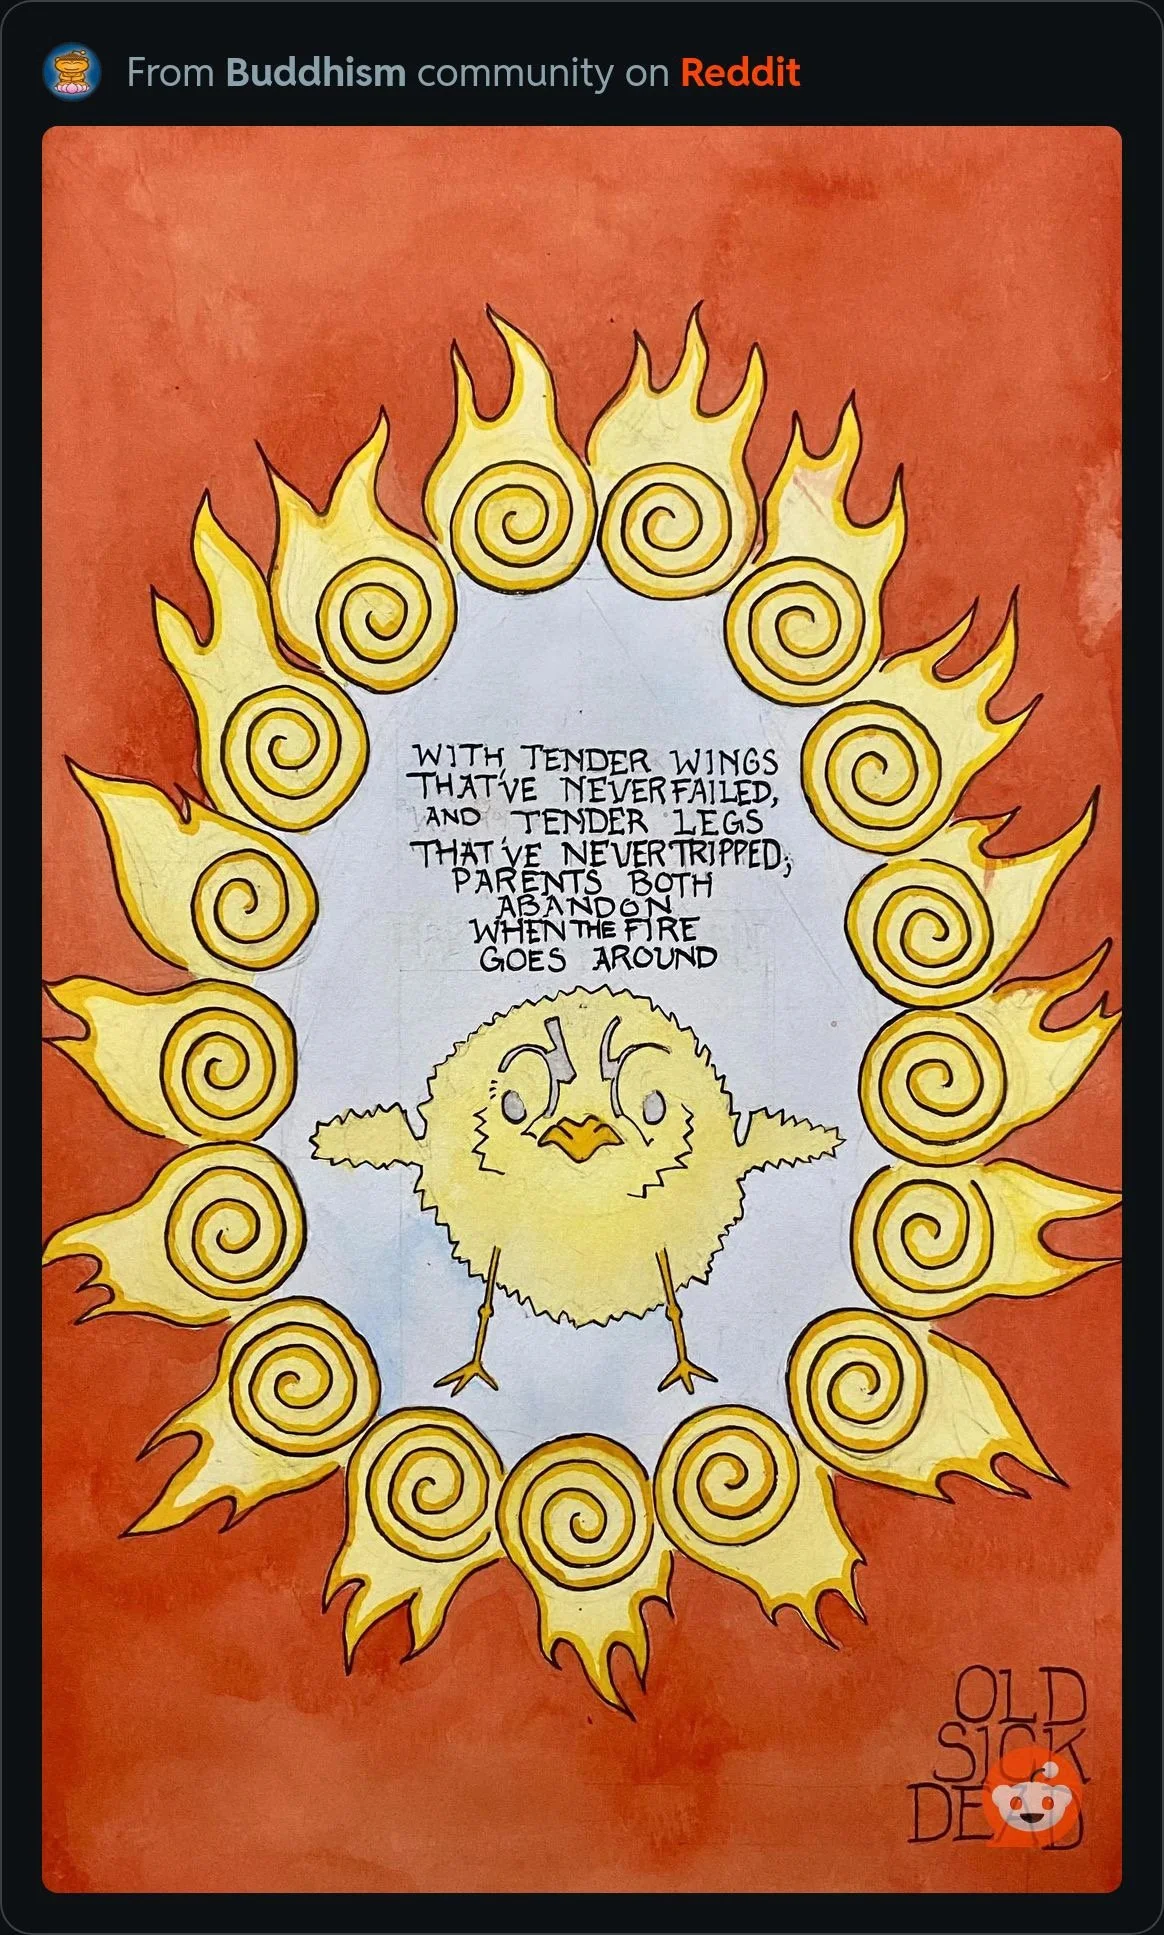 From Buddhism community on Reddit
WITH TENDER WINGS
THAT'VE NEVER FAILED,
AND TENDER LEGS
THAT'VE NEVER TRIPPED;
PARENTS BOTH
ABANDON
WHEN THE FIRE
GOES AROUND
OLD
SICK
DEAD